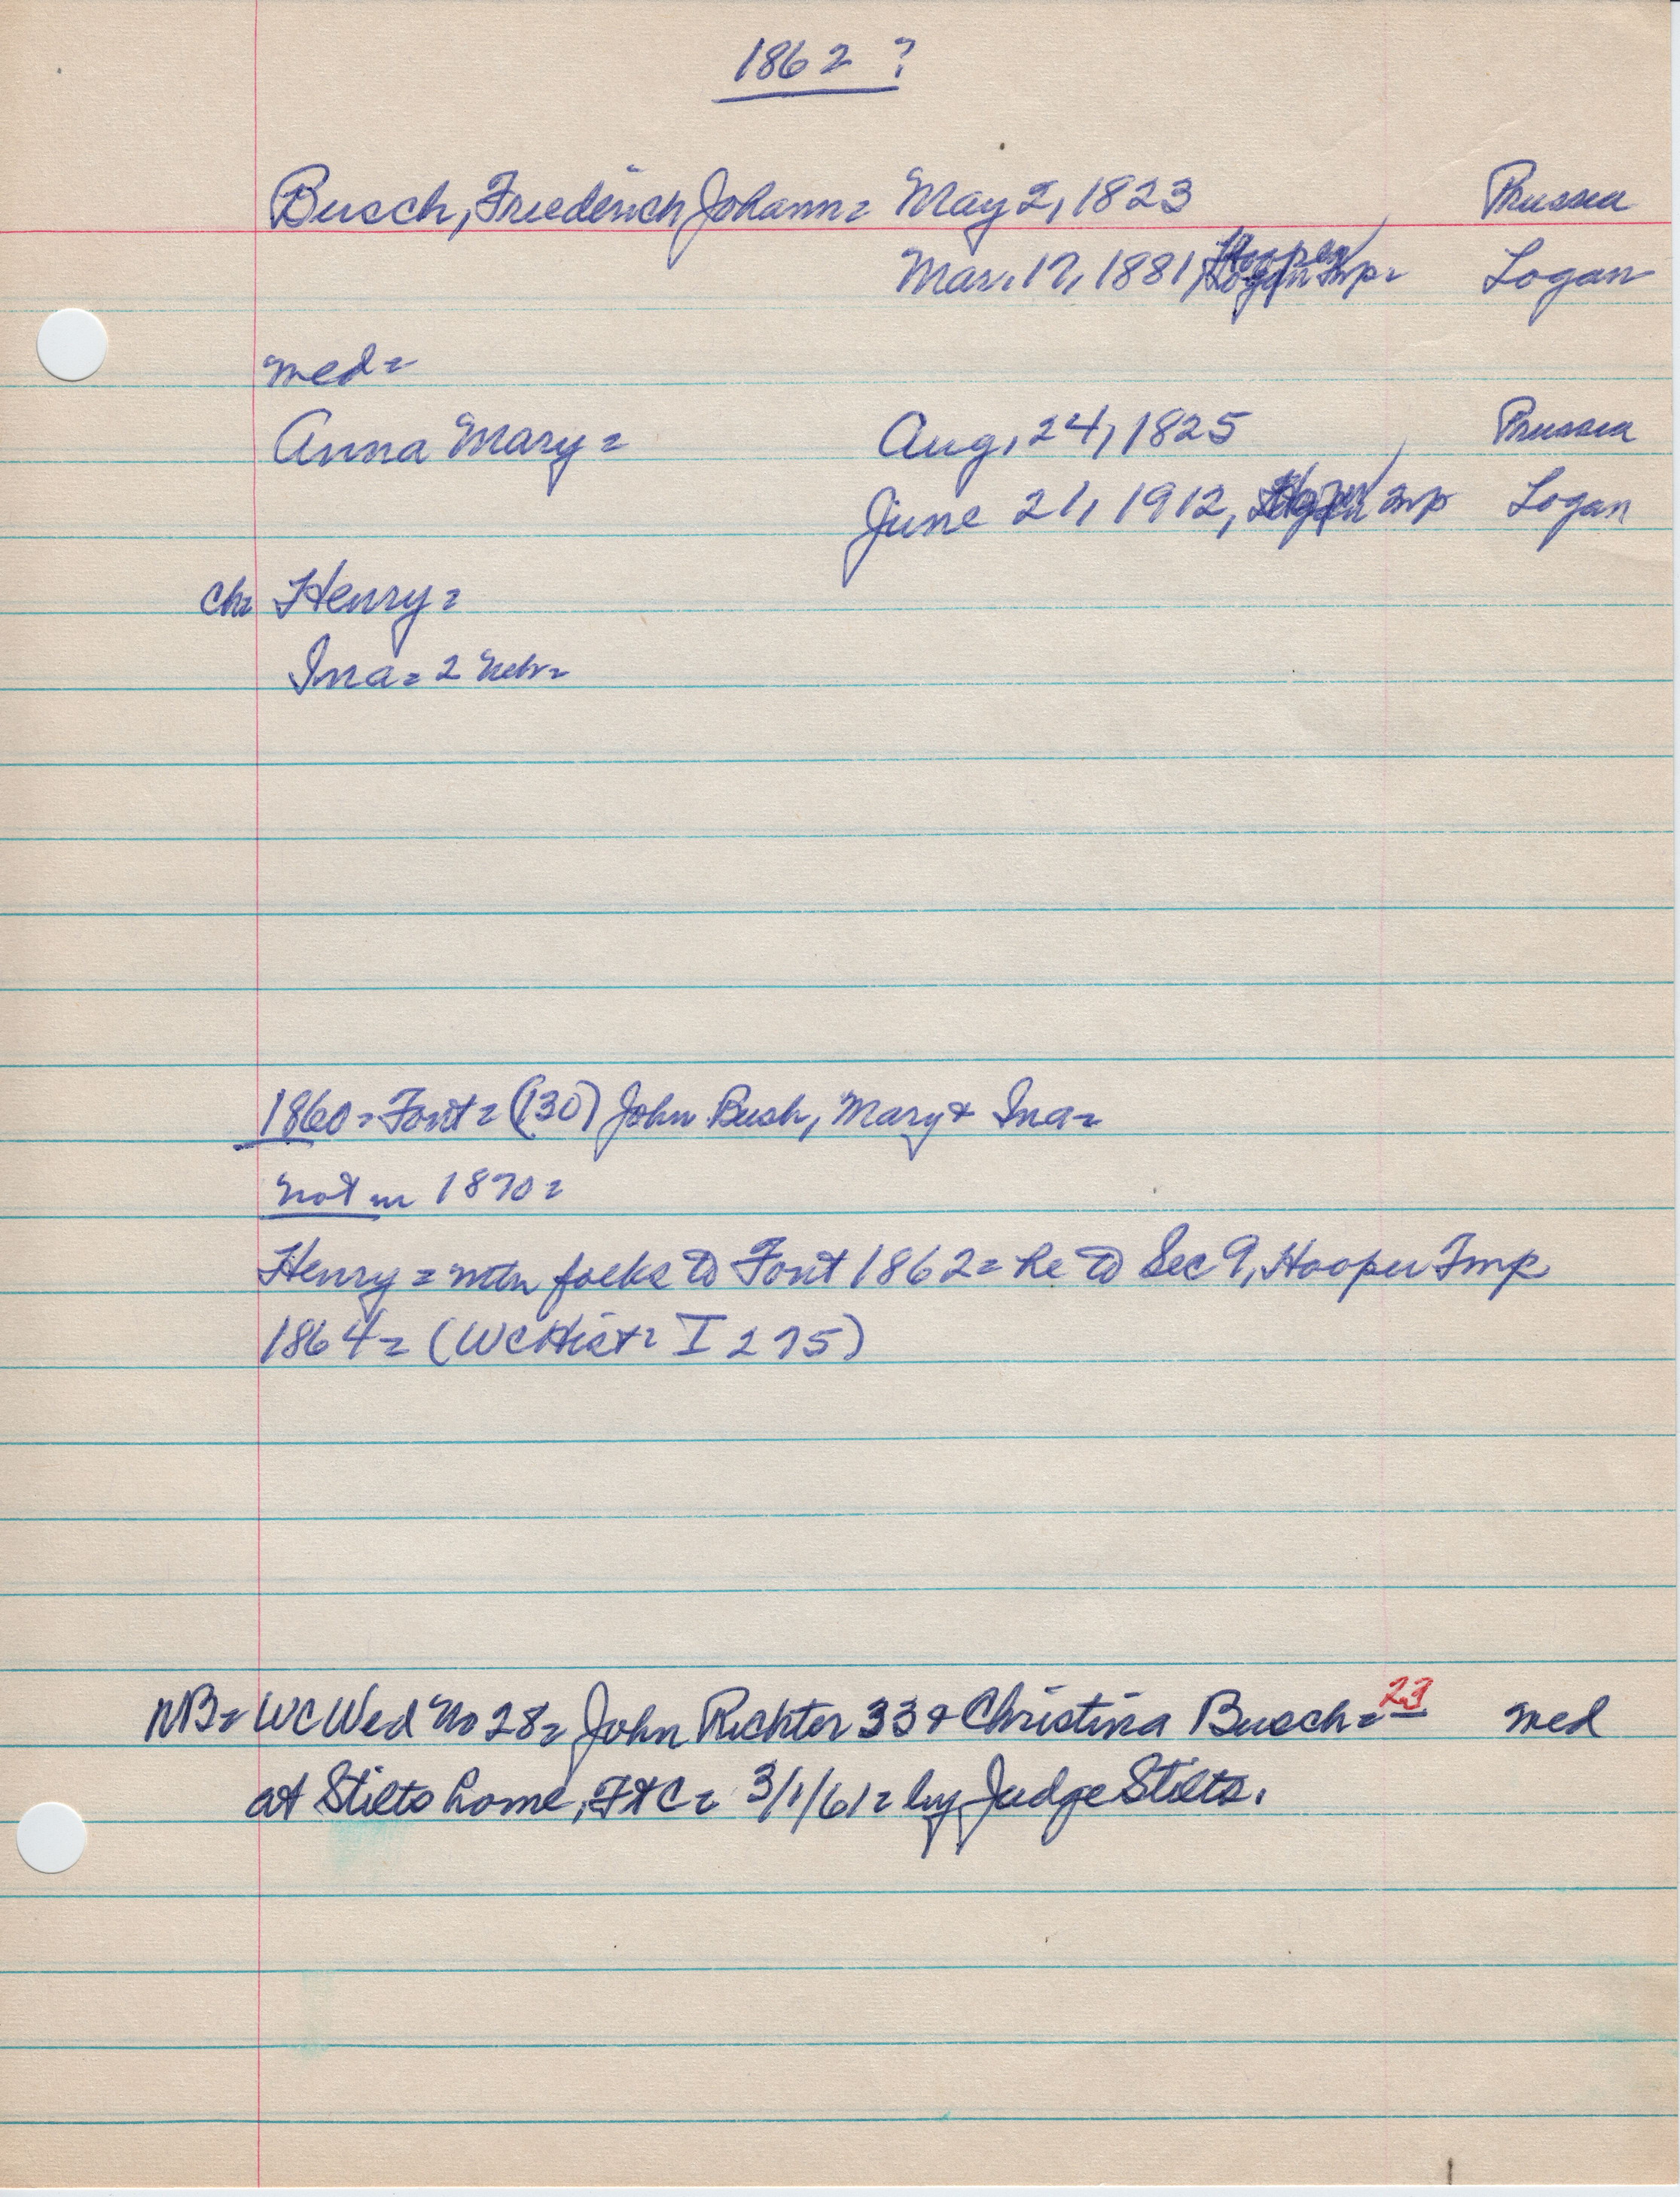 1862 ?
Busch, Friederich Johann= May 2, 1823 Prussia
Mar. 17, 1881, Twp= Logan
med=
Anna Mary= Aug. 24, 1825 Prussia
June 21, 1912, Twp Logan
ch= Henry=
Ina= 2 Nebr=
1860= Font= (130) John Bush, Mary & Ina=
not in 1870=
Henry= folks to Font 1862= he to Sec 9, Hooper Twp
1864= (WCHist= I 275)
NB= WC Wed No 28= John Richter 33 & Christina Busch= 23 med
at Stilts home, Ft C= 3/1/61= by Judge Stilts.